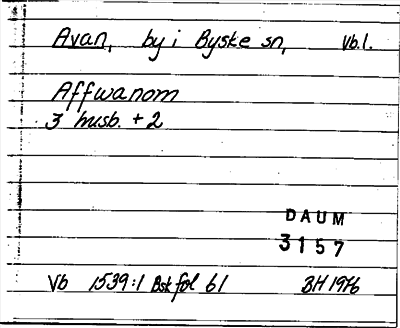 Avan, by i Byske sn, Vb.l.
Affwanom
3 husb. + 2
DAUM
3157
Vb 1539:1 Bsk fol 61 BH 1976